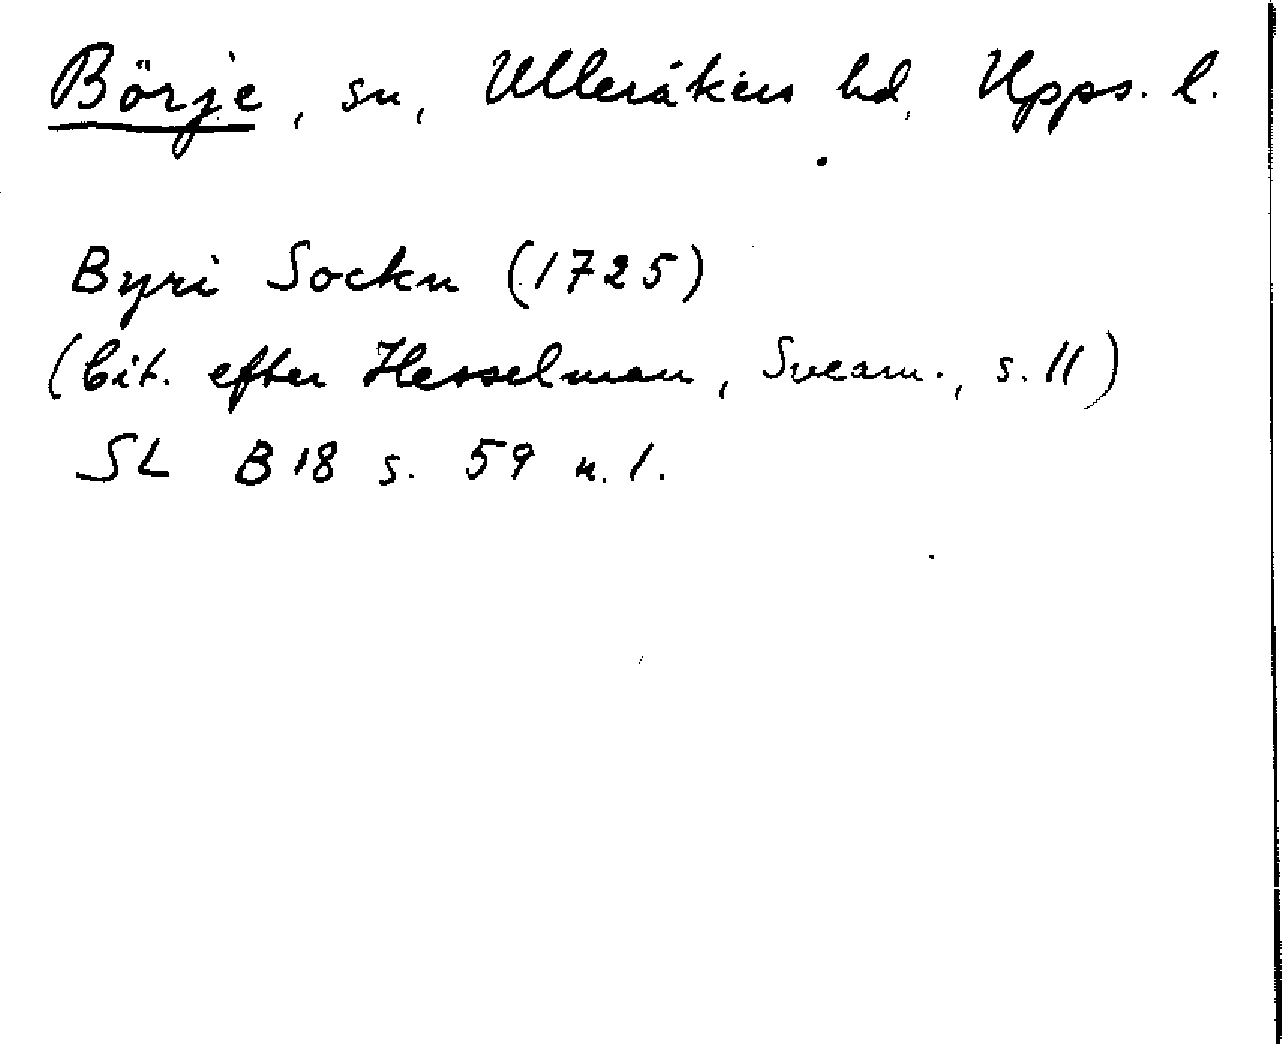 Börje, sn, Ulleråkers hd, Upps. l.
Byri Sockn (1725)
(Cit. efter Hesselman, Sveam., s. 11)
SL B 18 s. 59 n. 1.